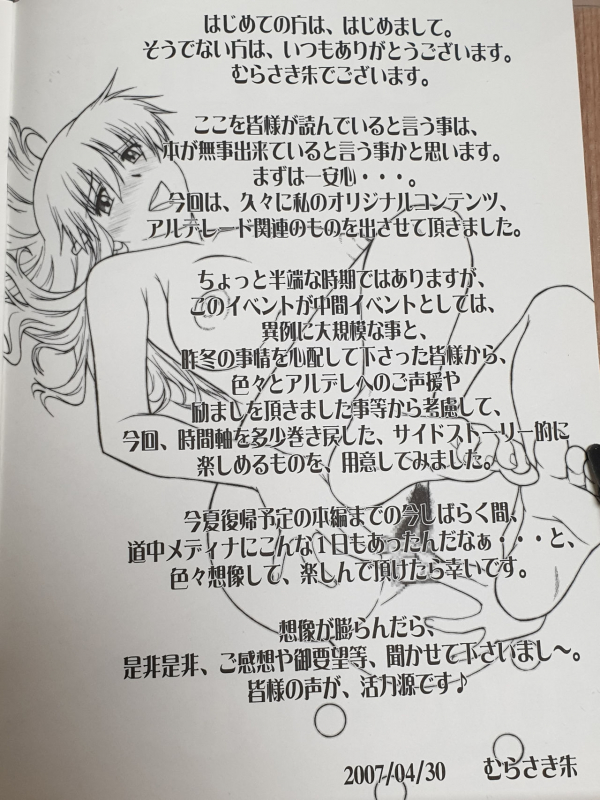 はじめての方は、はじめまして。
そうでない方は、いつもありがとうございます。
むらさき朱でございます。
ここを皆様が読んでいると言う事は、
本が無事出来ていると言う事かと思います。
まずは一安心・・・。
今回は、久々に私のオリジナルコンテンツ、
アルテレード関連のものを出させて頂きました。
ちょっと半端な時期ではありますが、
このイベントが中間イベントとしては、
異例に大規模な事と、
昨冬の事情を心配して下さった皆様から、
色々とアルテレへのご声援や
励ましを頂きました事等から考慮して、
今回、時間軸を多少巻き戻した、サイドストーリー的に
楽しめるものを、用意してみました。
今夏復帰予定の本編までの今しばらく間、
道中メディナにこんな１日もあったんだなぁ・・・と、
色々想像して、楽しんで頂けたら幸いです。
想像が膨らんだら、
是非是非、ご感想や御要望等、聞かせて下さいまし～。
皆様の声が、活力源です♪
2007/04/30　むらさき朱